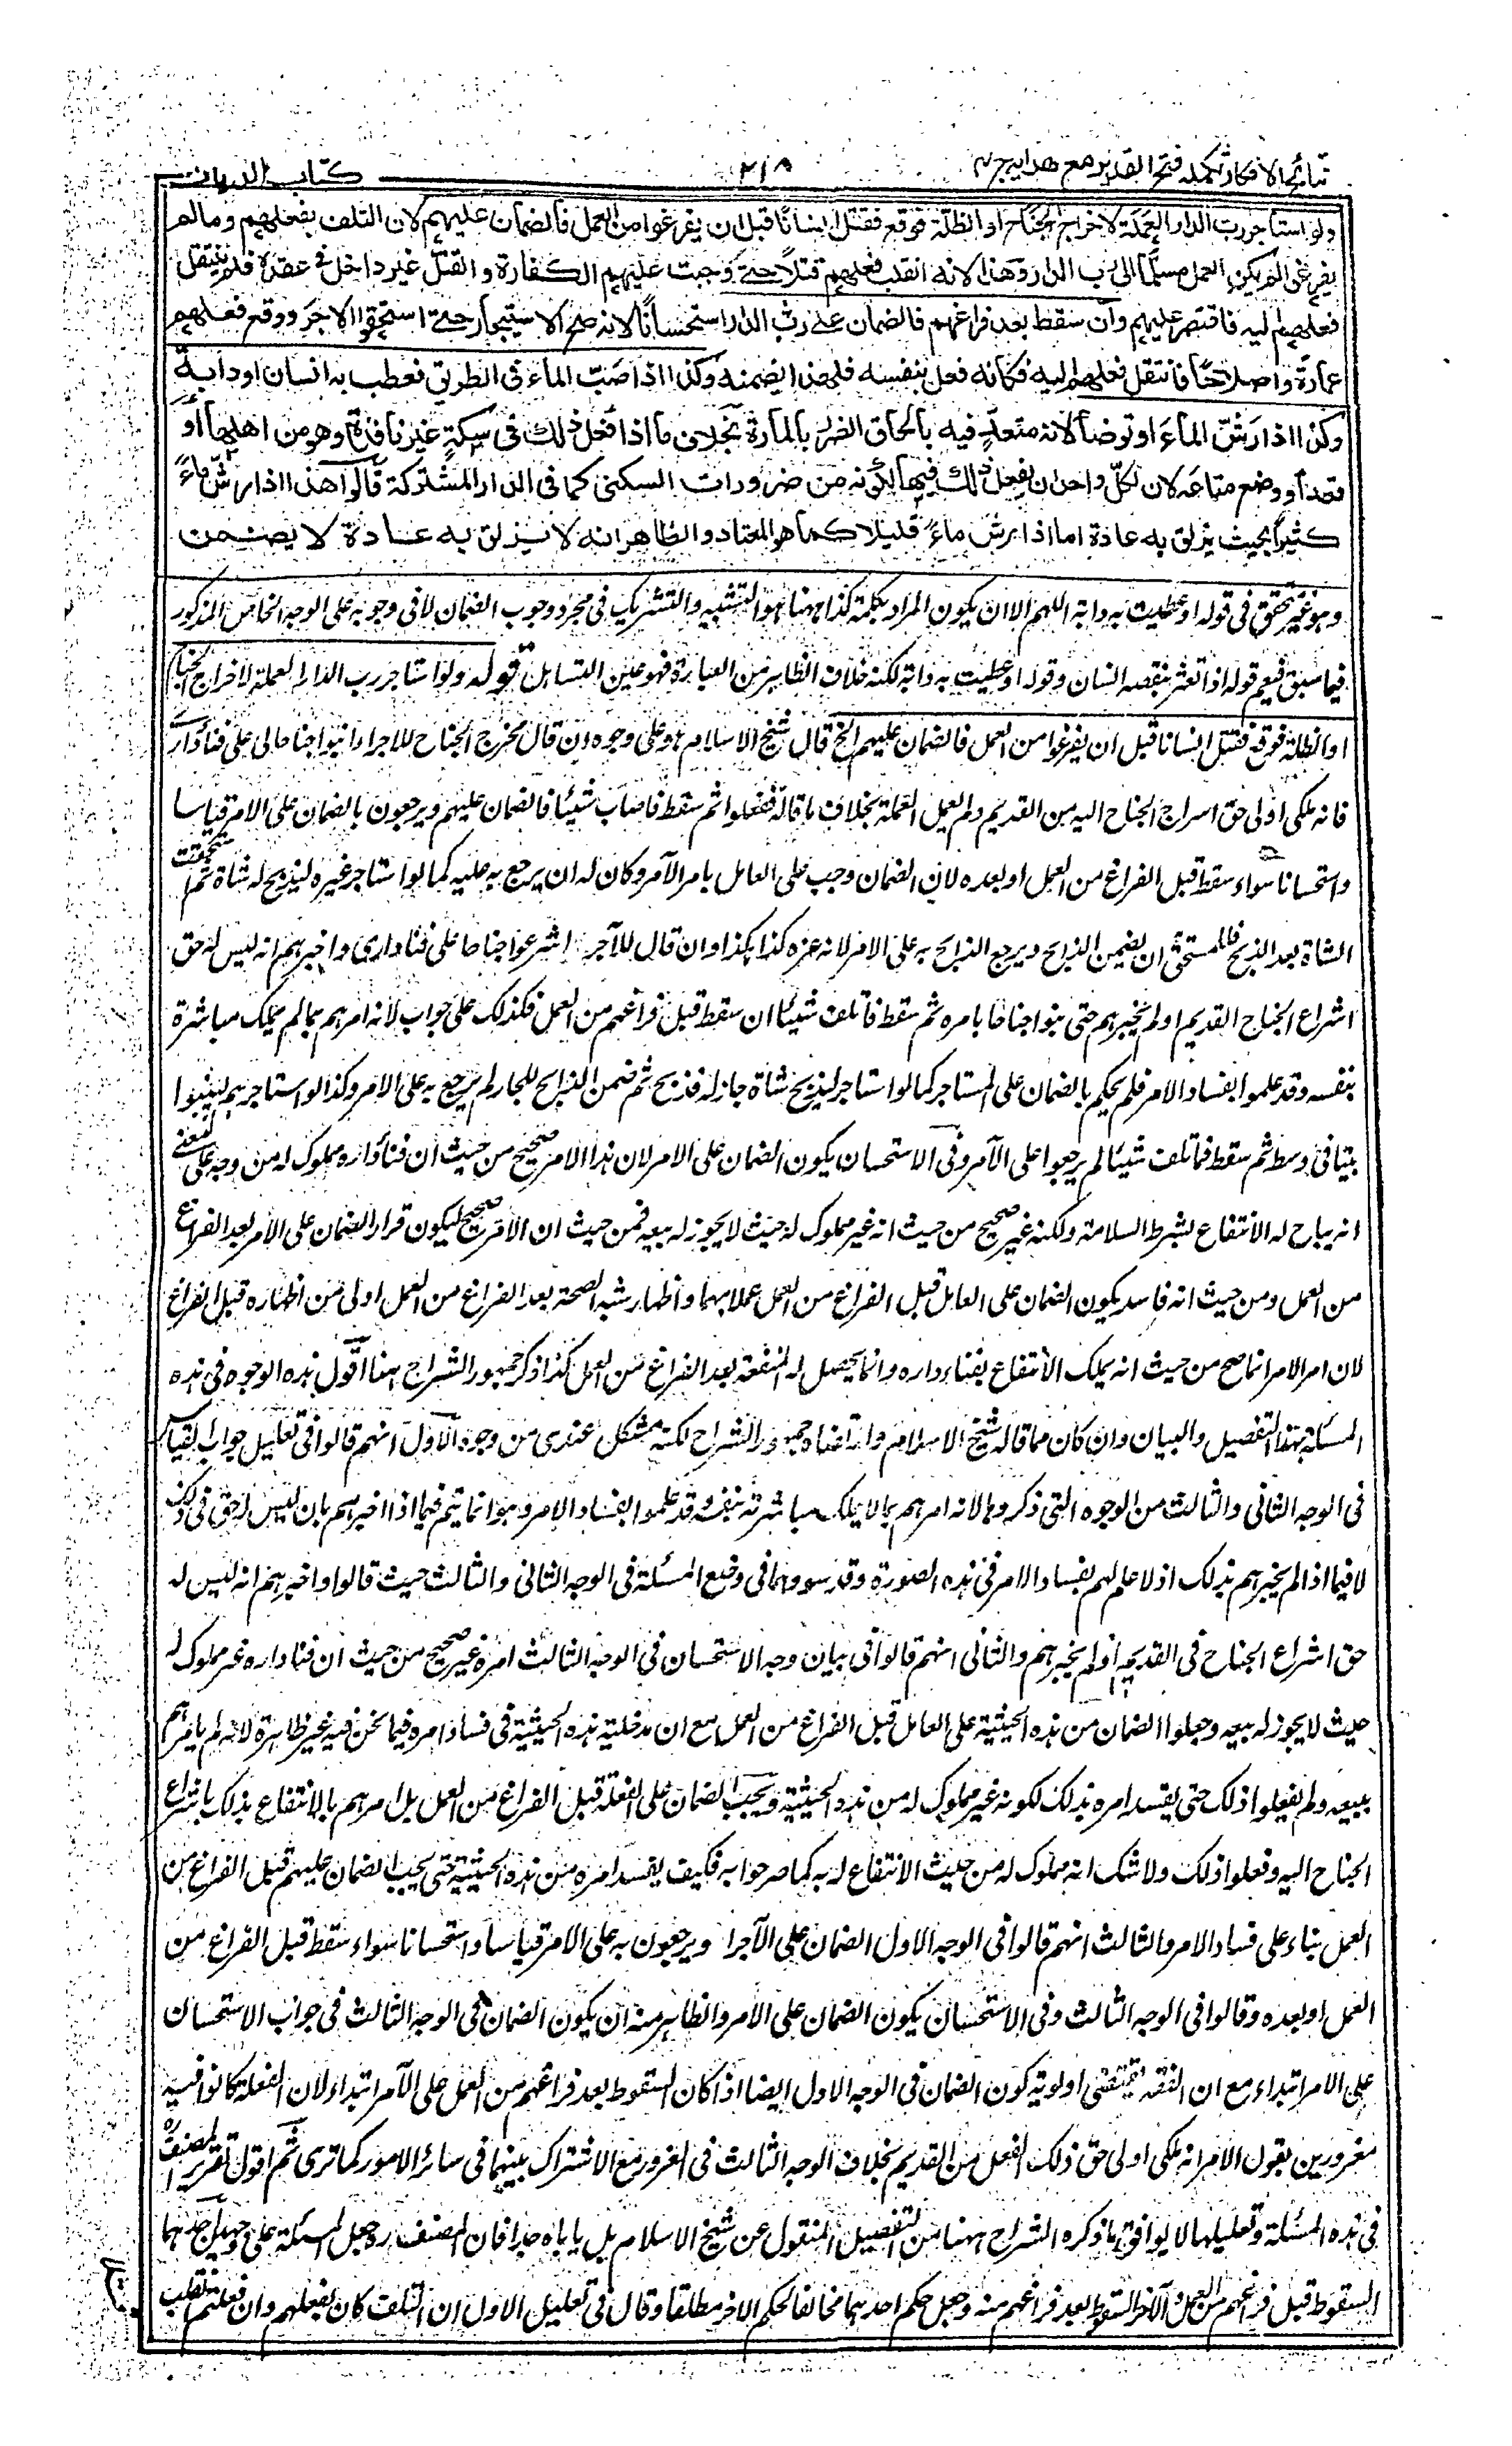 نتائج الافكار تكملة فتح القدير مع هدايه ج ٨ ٢١٨ كتاب الديات
ولو استاجر رب الدار العملة لاخراج الجناح او الظلة فوقع فقتل انسانا قبل ان يفرغوا من العمل فالضمان عليهم لان التلف بفعلهم ومالم
يفرغوا لم يكن العمل مسلما الى رب الدار وهذا لانه انقلب فعلهم قتلا حتى وجبت عليهم الكفارة والقتل غير داخل فى عقده فلم ينتقل
فعلهم اليه فاقتصر عليهم وان سقط بعد فراغهم فالضمان على رب الدار استحسانا لانه صح الاستيجار حتى استحقوا الاجر ووقع فعلهم
عمارة واصلاحا فانتقل فعلهم اليه فكانه فعل بنفسه فلهذا يضمنه وكذا اذا صب الماء فى الطريق فعطب به انسان او دابة
وكذا اذا رش الماء او توضأ لانه متعد فيه بالحاق الضرر بالمارة بخلاف ما اذا فعل ذلك فى سكة غير نافذة وهو من اهلها او
قعد او وضع متاعه لان لكل واحد ان يفعل ذلك فيها لكونه من ضرورات السكنى كما فى الدار المشتركة قالوا هذا اذا رش ماء
كثيرا بحيث يزلق به عادة اما اذا رش ماء قليلا كما هو المعتاد والظاهر انه لا يزلق به عادة لا يضمن
وهو غير متحقق فى قوله او عطبت به دابة اللهم الا ان يكون المراد بكلمة كذا ههنا هو التشبيه والتشريك فى مجرد وجوب الضمان لا فى وجوبه على الوجه الخاص المذكور
فيما سبق فيعم قوله اذا تعثر بنقضه انسان وقوله او عطبت به دابة لكنه خلاف الظاهر من العبارة فهو عين التساهل قوله ولو استاجر رب الدار العملة لاخراج الجناح
او الظلة فوقع فقتل انسانا قبل ان يفرغوا من العمل فالضمان عليهم الخ قال شيخ الاسلام هو على وجوه ان قال مخرج الجناح للاجراء ابنوا جناحا لى على فناء دارى
فانه ملكى او لى حق اسراج الجناح اليه من القديم ولم يعلم العملة بخلاف ما قاله ففعلوا ثم سقط فاصاب شيئا فالضمان عليهم ويرجعون بالضمان على الامر قياسا
واستحسانا سواء سقط قبل الفراغ من العمل او بعده لان الضمان وجب على العامل بامر الآمر وكان له ان يرجع به عليه كما لو استاجر غيره ليذبح له شاة ثم استحقت
الشاة بعد الذبح فللمستحق ان يضمن الذابح ويرجع الذابح به على الامر لانه غره كذا هكذا وان قال للآجراء اشرعوا جناحا على فناء دارى واخبرهم انه ليس له حق
اشراع الجناح القديم او لم يخبرهم حتى بنوا جناحا بامره ثم سقط فاتلف شيئا ان سقط قبل فراغهم من العمل فكذلك على جواب لانه امرهم بما لم يملك مباشرة
بنفسه وقد علموا بفساد الامر فلم يحكم بالضمان على المستاجر كما لو استاجر ليذبح شاة جار له فذبح ثم ضمن الذابح للجار لم يرجع به على الامر وكذا لو استاجرهم ليبنوا
بيتا فى وسط ثم سقط فاتلف شيئا لم يرجعوا على الآمر وفى الاستحسان يكون الضمان على الامر لان هذا الامر صحيح من حيث ان فناء داره مملوك له من وجه على معنى
انه يباح له الانتفاع بشرط السلامة ولكنه غير صحيح من حيث انه غير مملوك له حيث لا يجوز له بيعه فمن حيث ان الامر صحيح يكون قرار الضمان على الامر بعد الفراغ
من العمل ومن حيث انه فاسد يكون الضمان على العامل قبل الفراغ من العمل عملا بهما واظهار شبه الصحة بعد الفراغ من العمل اولى من اظهاره قبل الفراغ
لان امر الامر انما صح من حيث انه يملك الانتفاع بفناء داره وانما يحصل له المنفعة بعد الفراغ من العمل كذا ذكر جمهور الشراح ههنا اقول هذه الوجوه فى هذه
المسئلة بهذا التفصيل والبيان وان كان مما قاله شيخ الاسلام وارتضاه جمهور الشراح لكنه مشكل عندى من وجوه الاول انهم قالوا فى تعليل جواب القياس
فى الوجه الثانى والثالث من الوجوه التى ذكروها لانه امرهم بما لا يملك مباشرته بنفسه وقد علموا بفساد الامر وهو انما يتم فيما اذا اخبرهم بان ليس له حق فى ذلك
لا فيما اذا لم يخبرهم بذلك اذ لا علم لهم بفساد الامر فى هذه الصورة وقد سووهما فى وضع المسئلة فى الوجه الثانى والثالث حيث قالوا واخبرهم انه ليس له
حق اشراع الجناح فى القديم او لم يخبرهم والثانى انهم قالوا فى بيان وجه الاستحسان فى الوجه الثالث امره غير صحيح من حيث ان فناء داره غير مملوك له
حيث لا يجوز له بيعه وجعلوا الضمان من هذه الحيثية على العامل قبل الفراغ من العمل مع ان مدخلية هذه الحيثية فى فساد امره فيما نحن فيه غير ظاهرة لانه لم يامرهم
ببيعه ولم يفعلوا ذلك حتى يفسد امره بذلك لكونه غير مملوك له من هذه الحيثية ويجب الضمان على الفعلة قبل الفراغ من العمل بل امرهم بالانتفاع بذلك باشراع
الجناح اليه وفعلوا ذلك ولا شك انه مملوك له من حيث الانتفاع له به كما صرحوا به فكيف يفسد امره من هذه الحيثية حتى يجب الضمان عليهم قبل الفراغ من
العمل بناء على فساد الامر والثالث انهم قالوا فى الوجه الاول الضمان على الآجراء ويرجعون به على الامر قياسا واستحسانا سواء سقط قبل الفراغ من
العمل او بعده وقالوا فى الوجه الثالث وفى الاستحسان يكون الضمان على الامر والظاهر منه ان يكون الضمان فى الوجه الثالث فى جواب الاستحسان
على الامر ابتداء مع ان الفقه يقتضى اولوية كون الضمان فى الوجه الاول ايضا اذا كان السقوط بعد فراغهم من العمل على الآمر ابتداء لان الفعلة كانوا فيه
مغرورين بقول الامر انه ملكى او لى حق ذلك الفعل من القديم بخلاف الوجه الثالث فى الغرور مع الاشتراك بينهما فى سائر الامور كما ترى ثم اقول تقرير المصنف ره
فى هذه المسئلة وتعليلها لا يوافق ما ذكره الشراح ههنا من التفصيل المنقول عن شيخ الاسلام بل ياباه جدا فان المصنف ره جعل المسئلة على وجهين احدهما
السقوط قبل فراغهم من العمل والآخر السقوط بعد فراغهم منه وجعل حكم احدهما مخالفا لحكم الاخر مطلقا وقال فى تعليل الاول ان التلف كان بفعلهم وان فعلهم انقلب